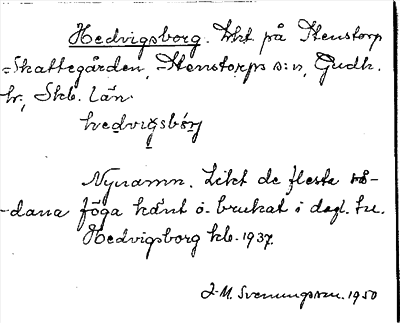 Hedvigsborg. Lht på Stenstorp
-Skattegården, Stenstorps s:n, Gudh.
hr., Skb. län.
hedvigsbórj
Nynamn. Likt de flesta så-
-dana föga känt o. brukat i dagl. tal.
Hedvigsborg kb. 1937.
J-M. Svenungsson. 1950